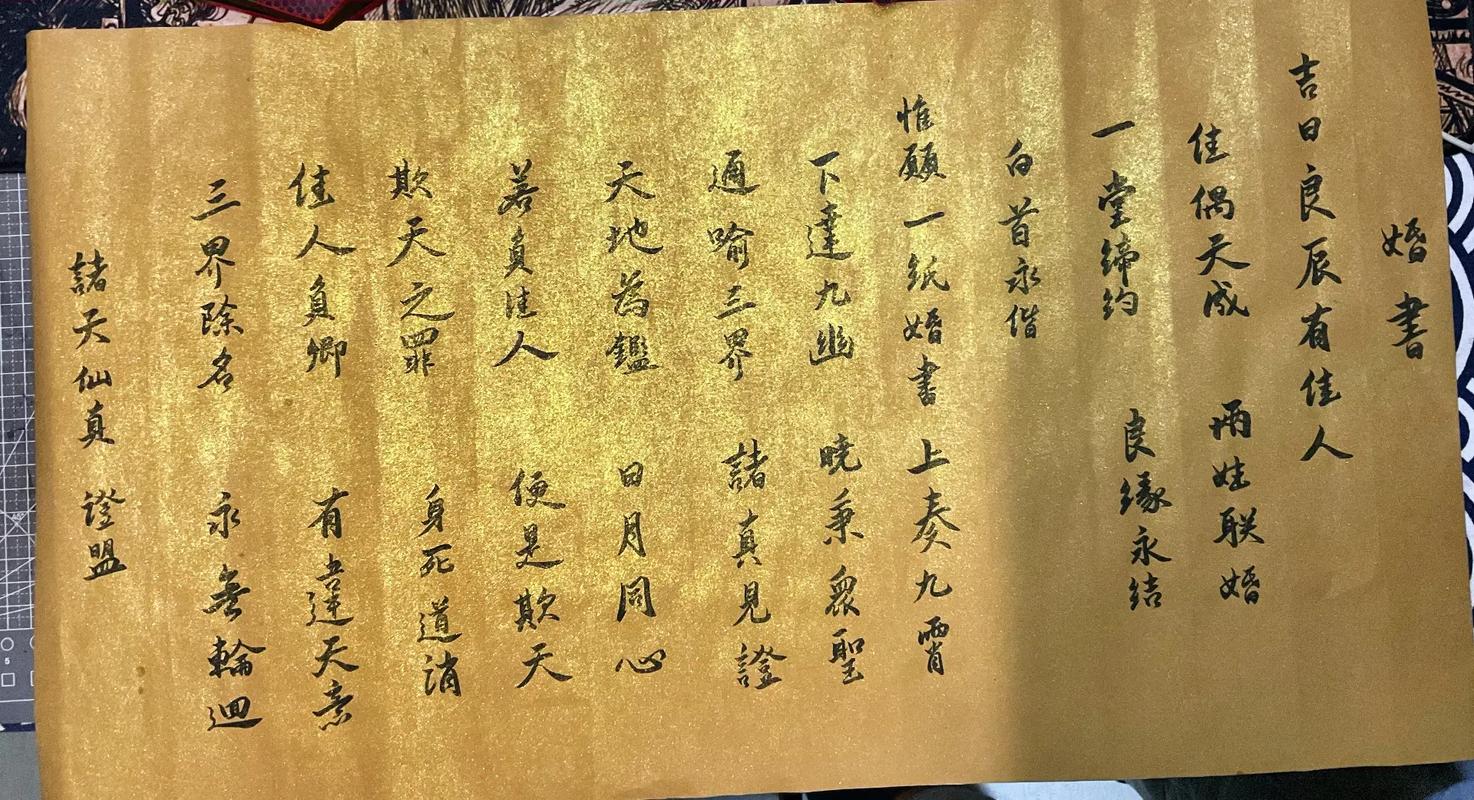 婚書
吉日良辰有佳人
佳偶天成 兩姓联婚
一堂締约 良缘永结
白首永偕
惟願一紙婚書 上奏九霄
下達九幽 曉秉衆聖
通喻三界 諸真見證
天地為鑑 日月同心
若負佳人 便是欺天
欺天之罪 身死道消
佳人負卿 有違天意
三界除名 永無輪迴
諸天仙真 證盟